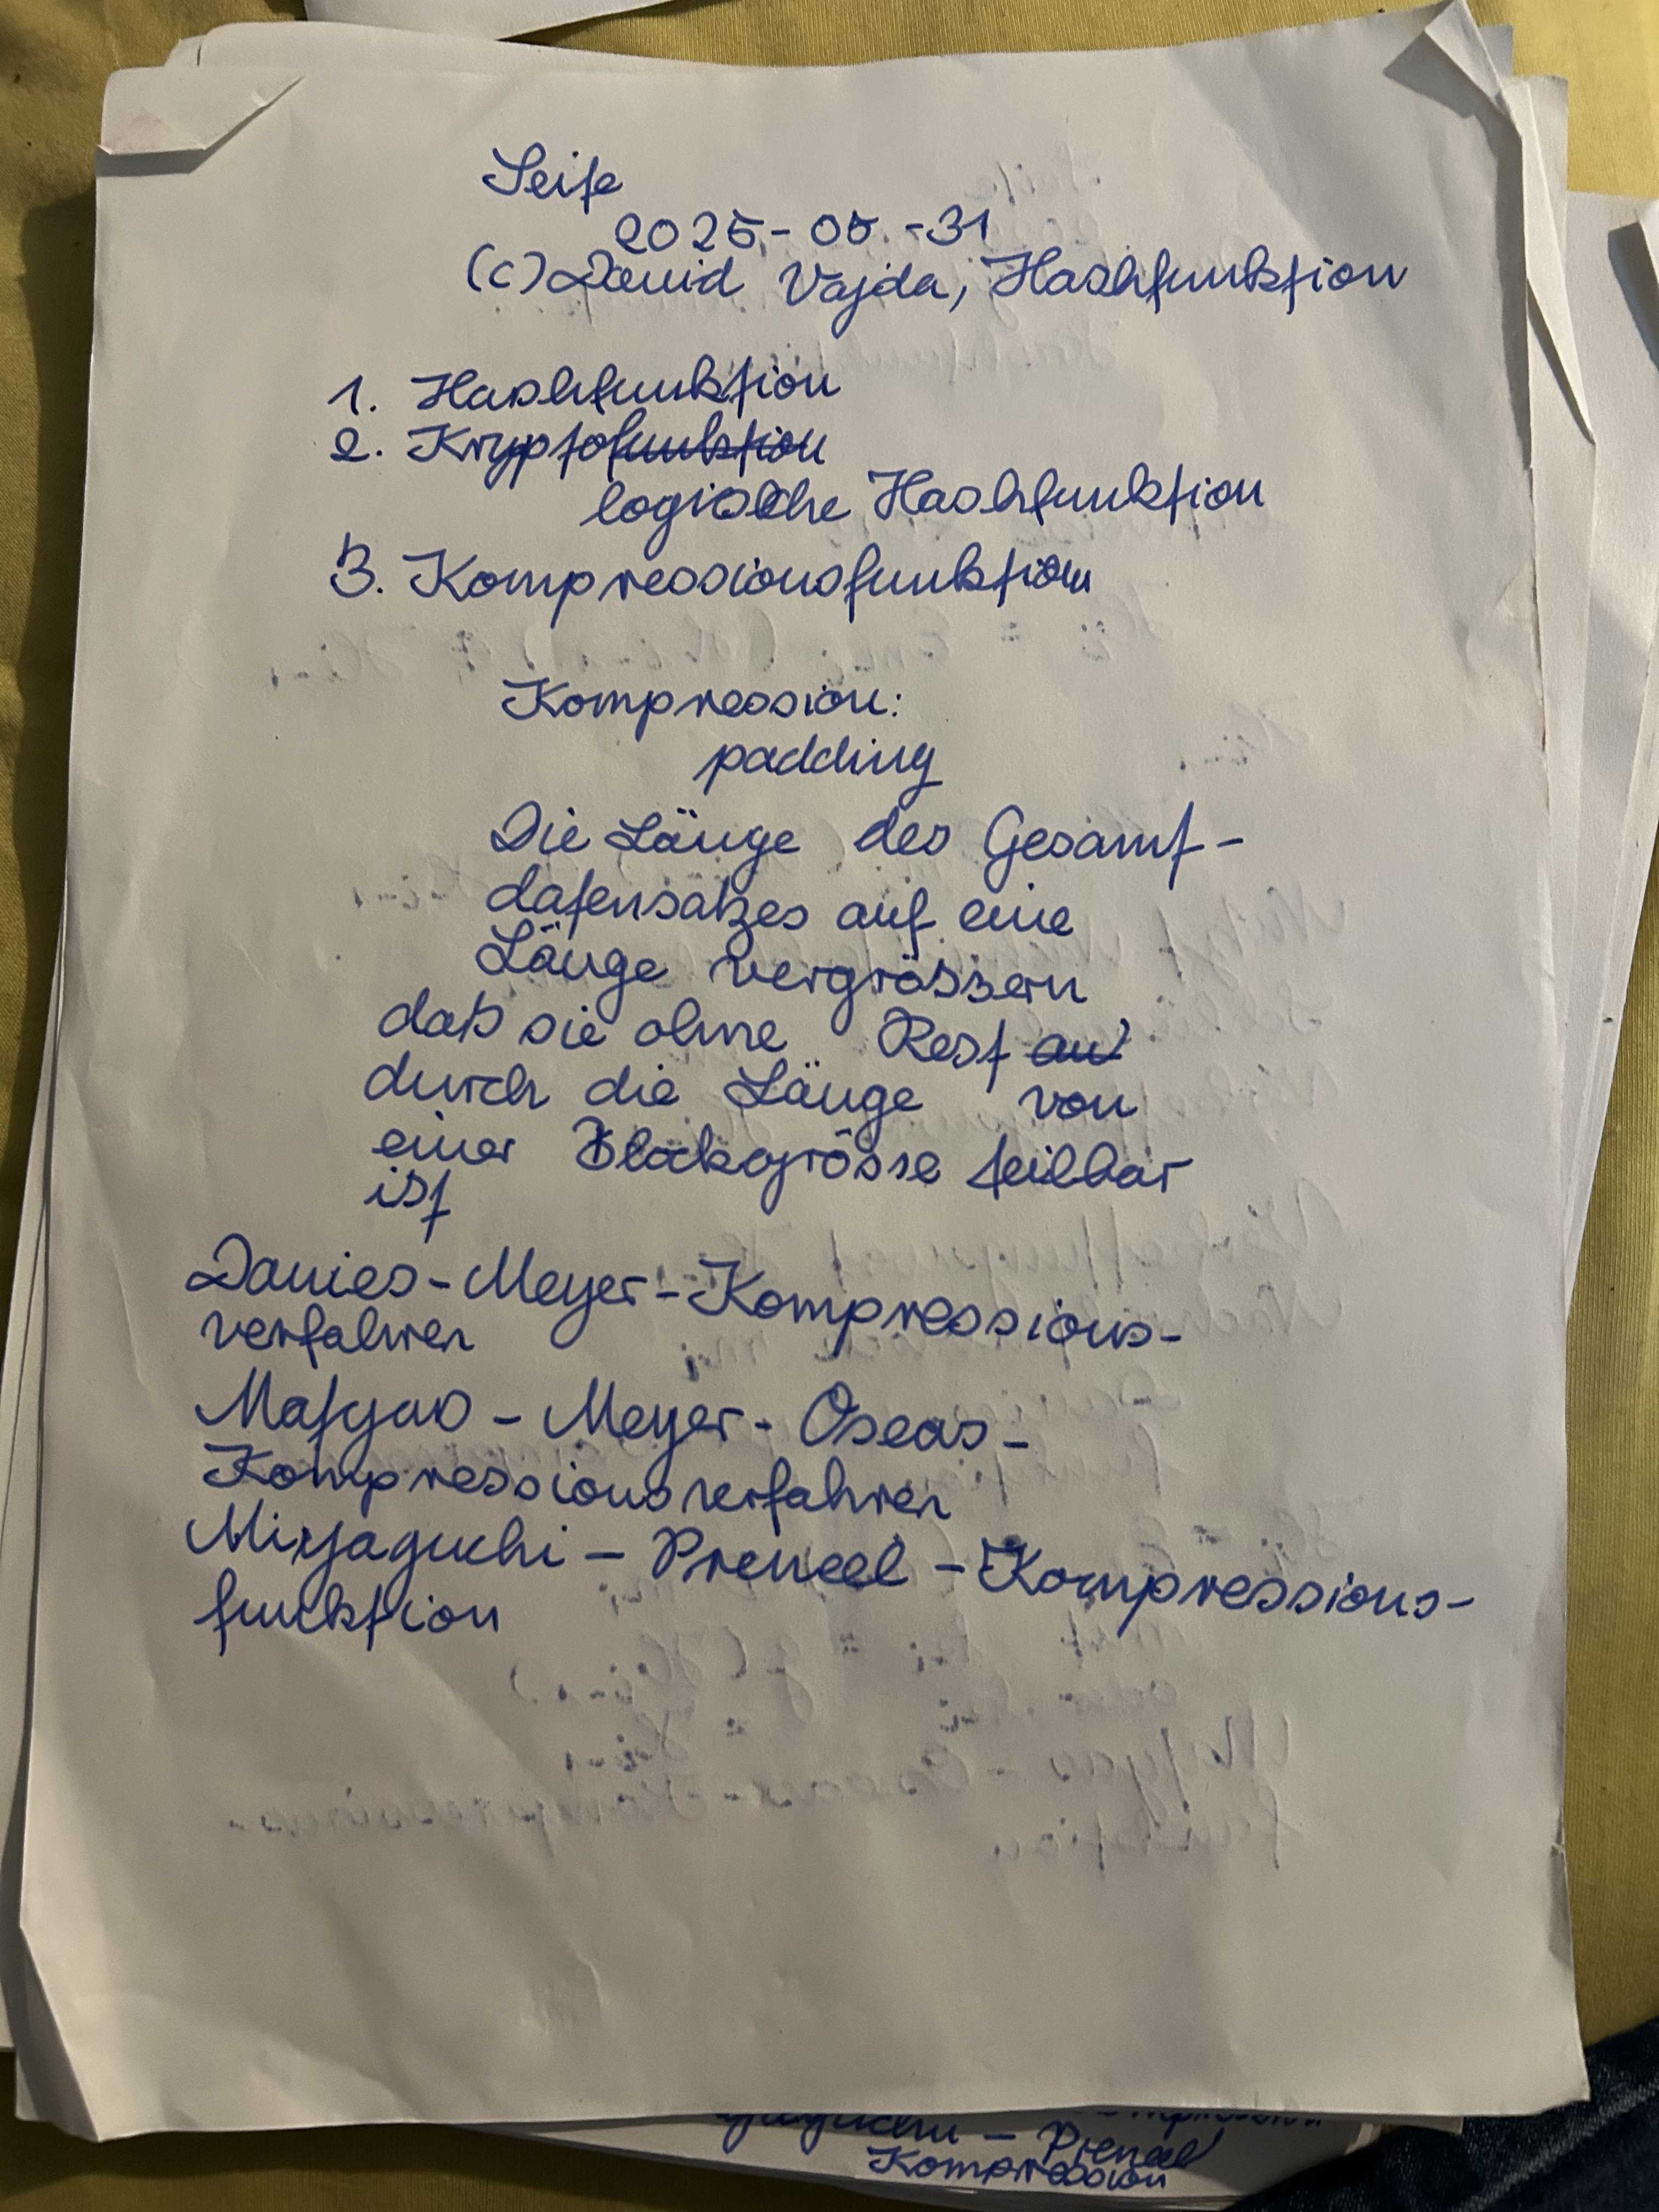 Seife
2025-05-31
(c) David Vajda, Hashfunktion
1. Hashfunktion
2. Kryptofunktion
logische Hashfunktion
3. Kompressionsfunktion
Kompression:
padding
Die Länge des Gesamt-
datensatzes auf eine
Länge vergrössern
daß sie ohne Rest au
durch die Länge von
einer Blockgrösse teilbar
ist
Davies-Meyer-Kompressions-
verfahren
Matyas - Meyer - Oseas -
Kompressionsverfahren
Miyaguchi - Preneel - Kompressions-
funktion
- Preneel
Kompression